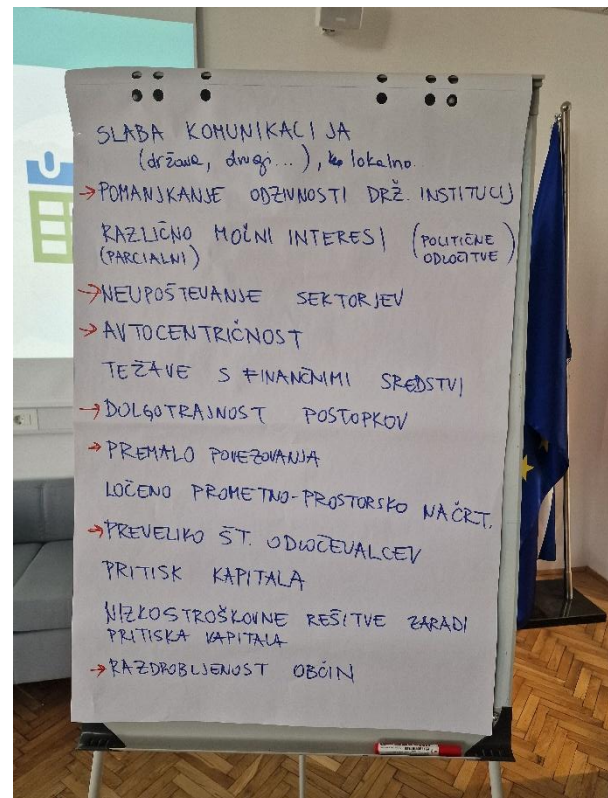 SLABA KOMUNIKACIJA
(država, drugi...), lokalno.
→POMANJKANJE ODZIVNOSTI DRŽ. INSTITUCIJ
RAZLIČNO MOČNI INTERESI (POLITIČNE
(PARCIALNI) ODLOČITVE)
→NEUPOŠTEVANJE SEKTORJEV
→AVTOCENTRIČNOST
TEŽAVE S FINANČNIMI SREDSTVI
→DOLGOTRAJNOST POSTOPKOV
→PREMALO POVEZOVANJA
LOČENO PROMETNO-PROSTORSKO NAČRT.
→PREVELIKO ŠT. ODLOČEVALCEV
PRITISK KAPITALA
NIZKOSTROŠKOVNE REŠITVE ZARADI
PRITISKA KAPITALA
→RAZDROBLJENOST OBČIN